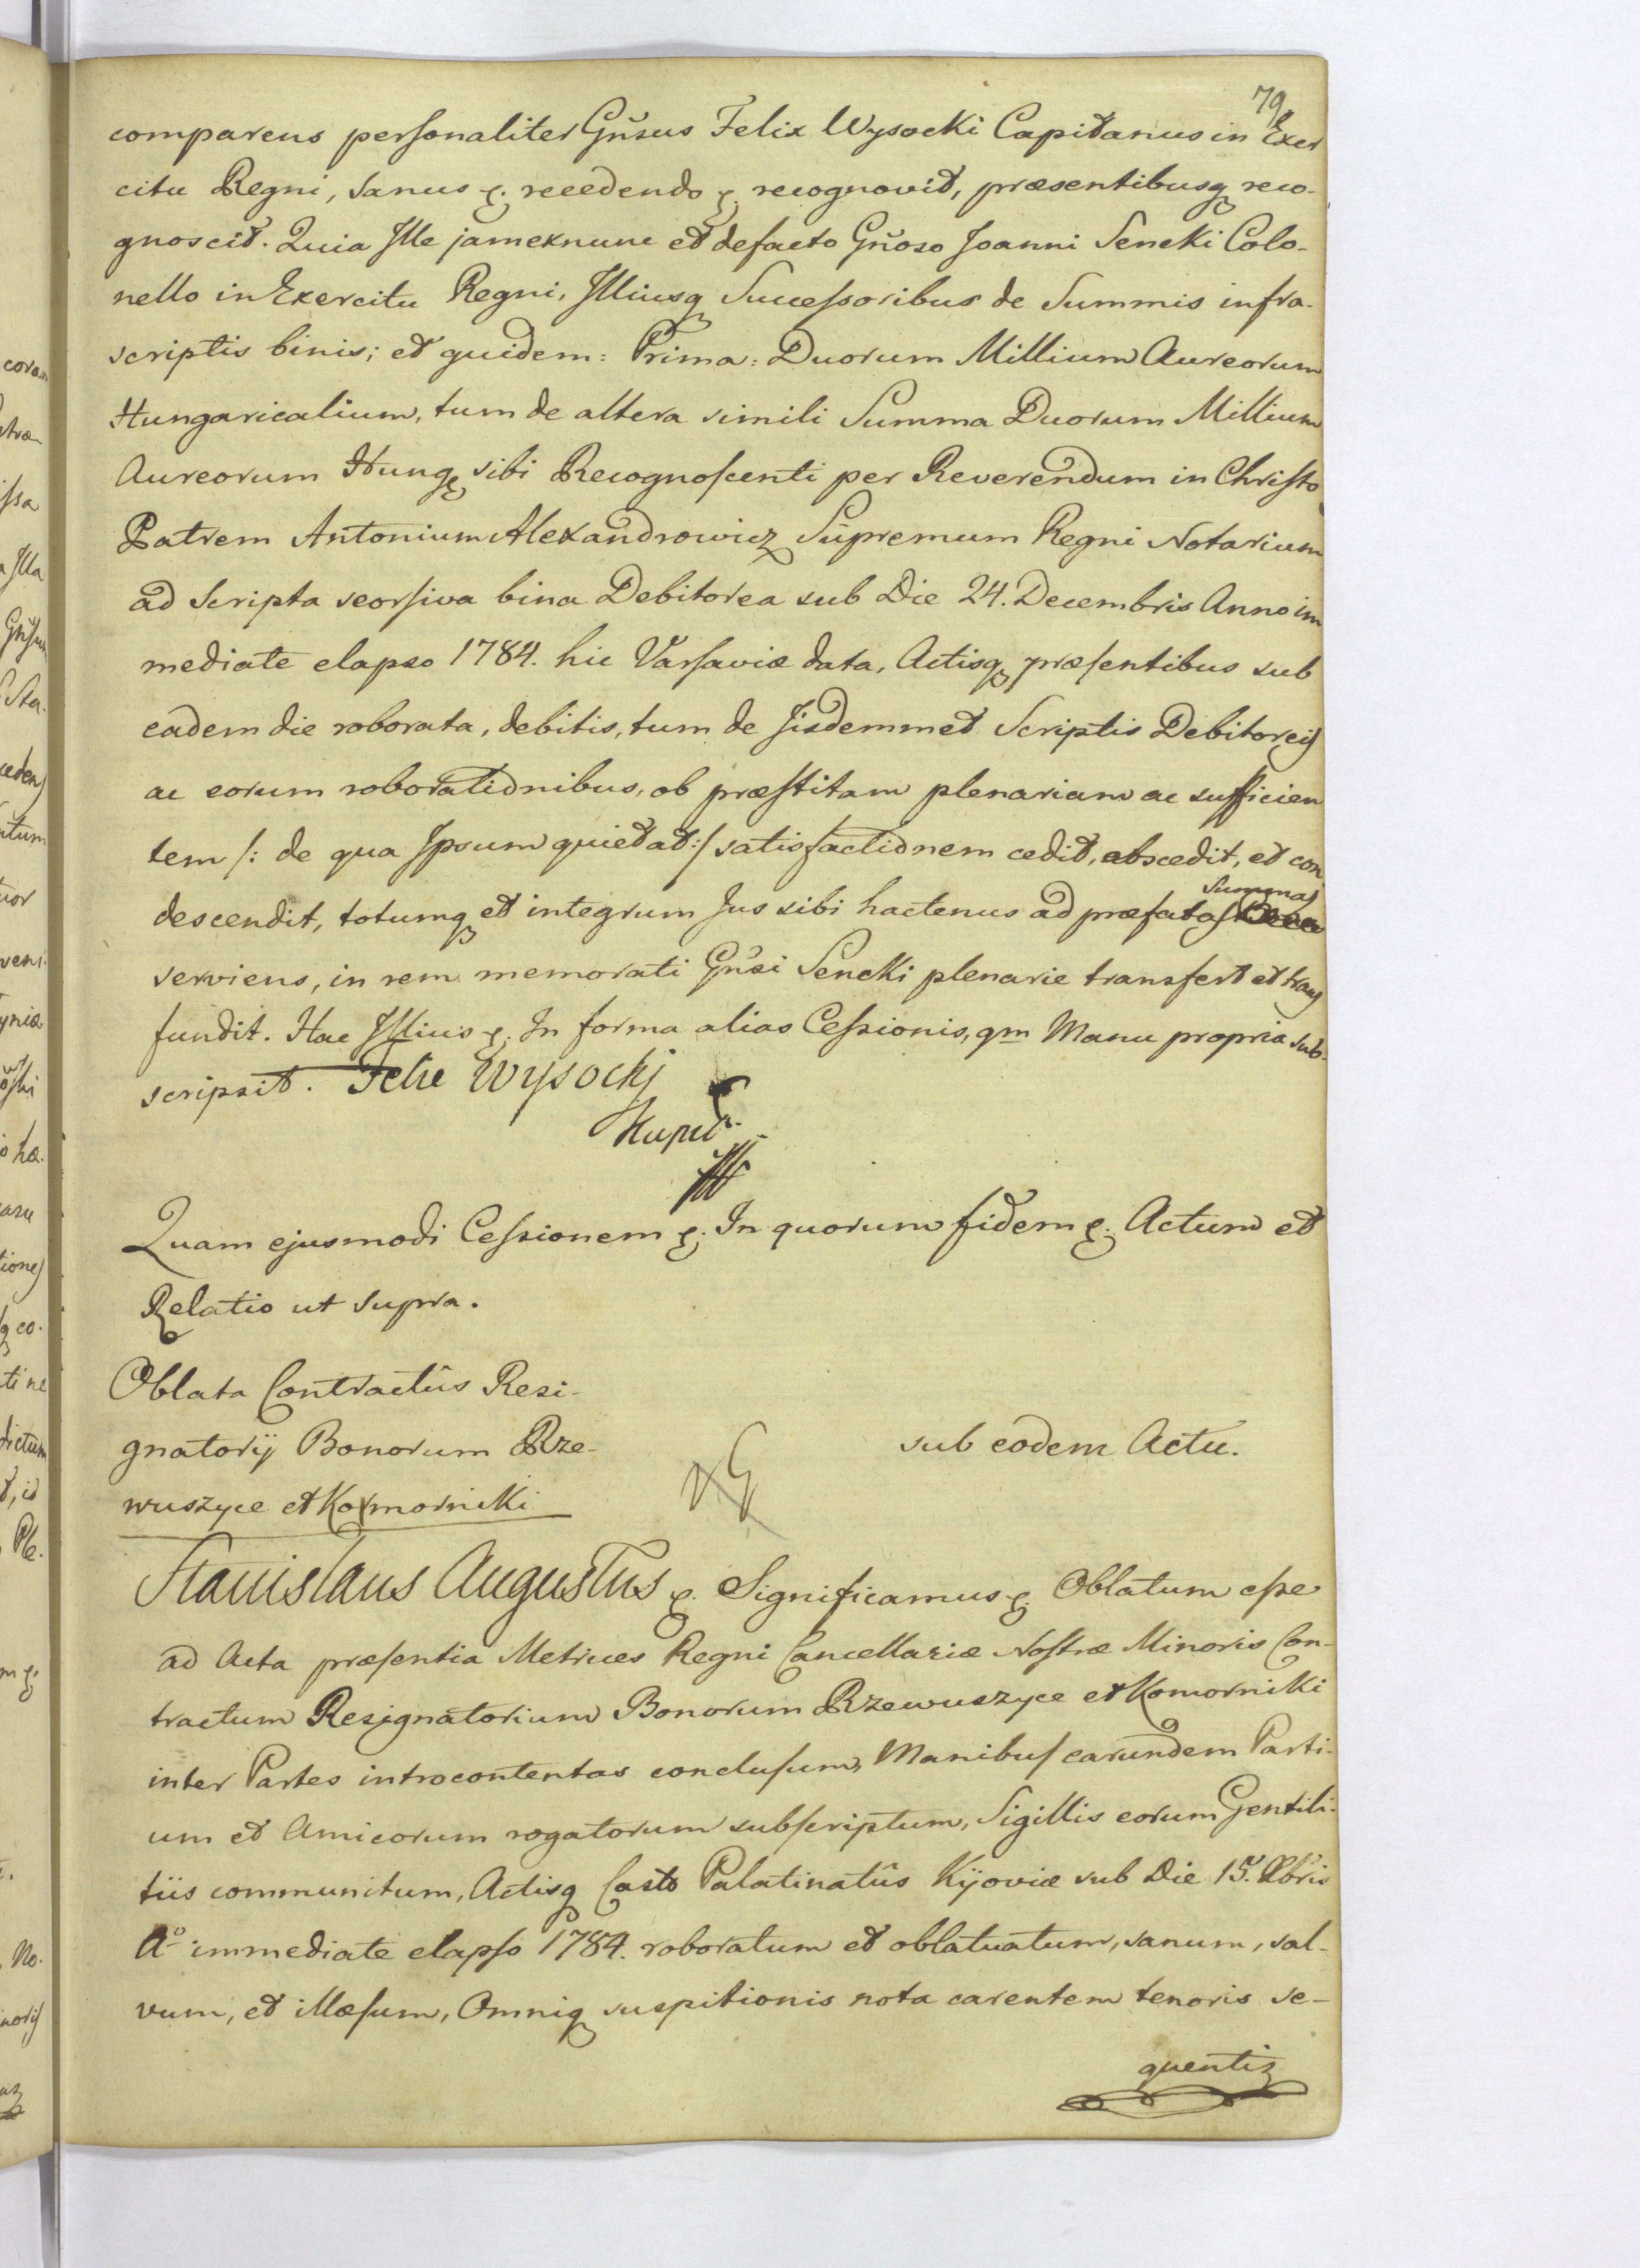 79
comparens personaliter Gnsus Felix Wysocki Capitanus in Exer
citu Regni, sanus &. recedendo &. recognovit, præsentibusq reco-
gnoscit. Quia Ille jamexnunc et defacto Gnoso Joanni Sencki Colo-
nello in Exercitu Regni, Illiusq Successoribus de Summis infra-
scriptis binis; et quidem: Prima: Duorum Millium Aureorum
Hungaricalium, tum de altera simili Summa Duorum Millium
Aureorum Hung: sibi Recognoscenti per Reverendum in Christo
Patrem Antonium Alexandrowicz Supremum Regni Notarium
ad Scripta seorsiva bina Debitorea sub Die 24. Decembris Anno im
mediate elapso 1784. hic Varsaviæ data, Actisq præsentibus sub
eadem die roborata, debitis, tum de Iisdemmet Scriptis Debitoreis
ac eorum roborationibus, ob præstitam plenariam ac sufficien
tem /: de qua Ipsum quietat :/ satisfactionem cedit, abscedit, et con
descendit, totumq et integrum Jus sibi hactenus ad præfatas Summas
serviens, in rem memorati Gnsi Sencki plenarie transfert et trans
fundit. Hac Illius &. In forma alias Cessionis, qm Manu propria sub-
scripsit. Felix Wysocki
Kapit.
Quam ejusmodi Cessionem &. In quorum fidem &. Actum et
Relatio ut supra.
Oblata Contractûs Resi-
gnatorij Bonorum Rze-
wuszyce et Komorniki
sub eodem Actu.
Stanislaus Augustus &. Significamus &. Oblatum esse
ad Acta præsentia Metrices Regni Cancellariæ Nostræ Minoris Con-
tractum Resignatorium Bonorum Rzewuszyce et Komorniki
inter Partes introcontentas conclusum, Manibus earundem Parti-
um et Amicorum rogatorum subscriptum, Sigillis eorum Gentili-
tiis communitum, Actisq Casto Palatinatûs Kijoviæ sub Die 15. Xbris
Ao immediate elapso 1784. roboratum et oblatuatum, sanum, sal-
vum, et illæsum, Omniq suspitionis nota carentem tenoris se-
quentis